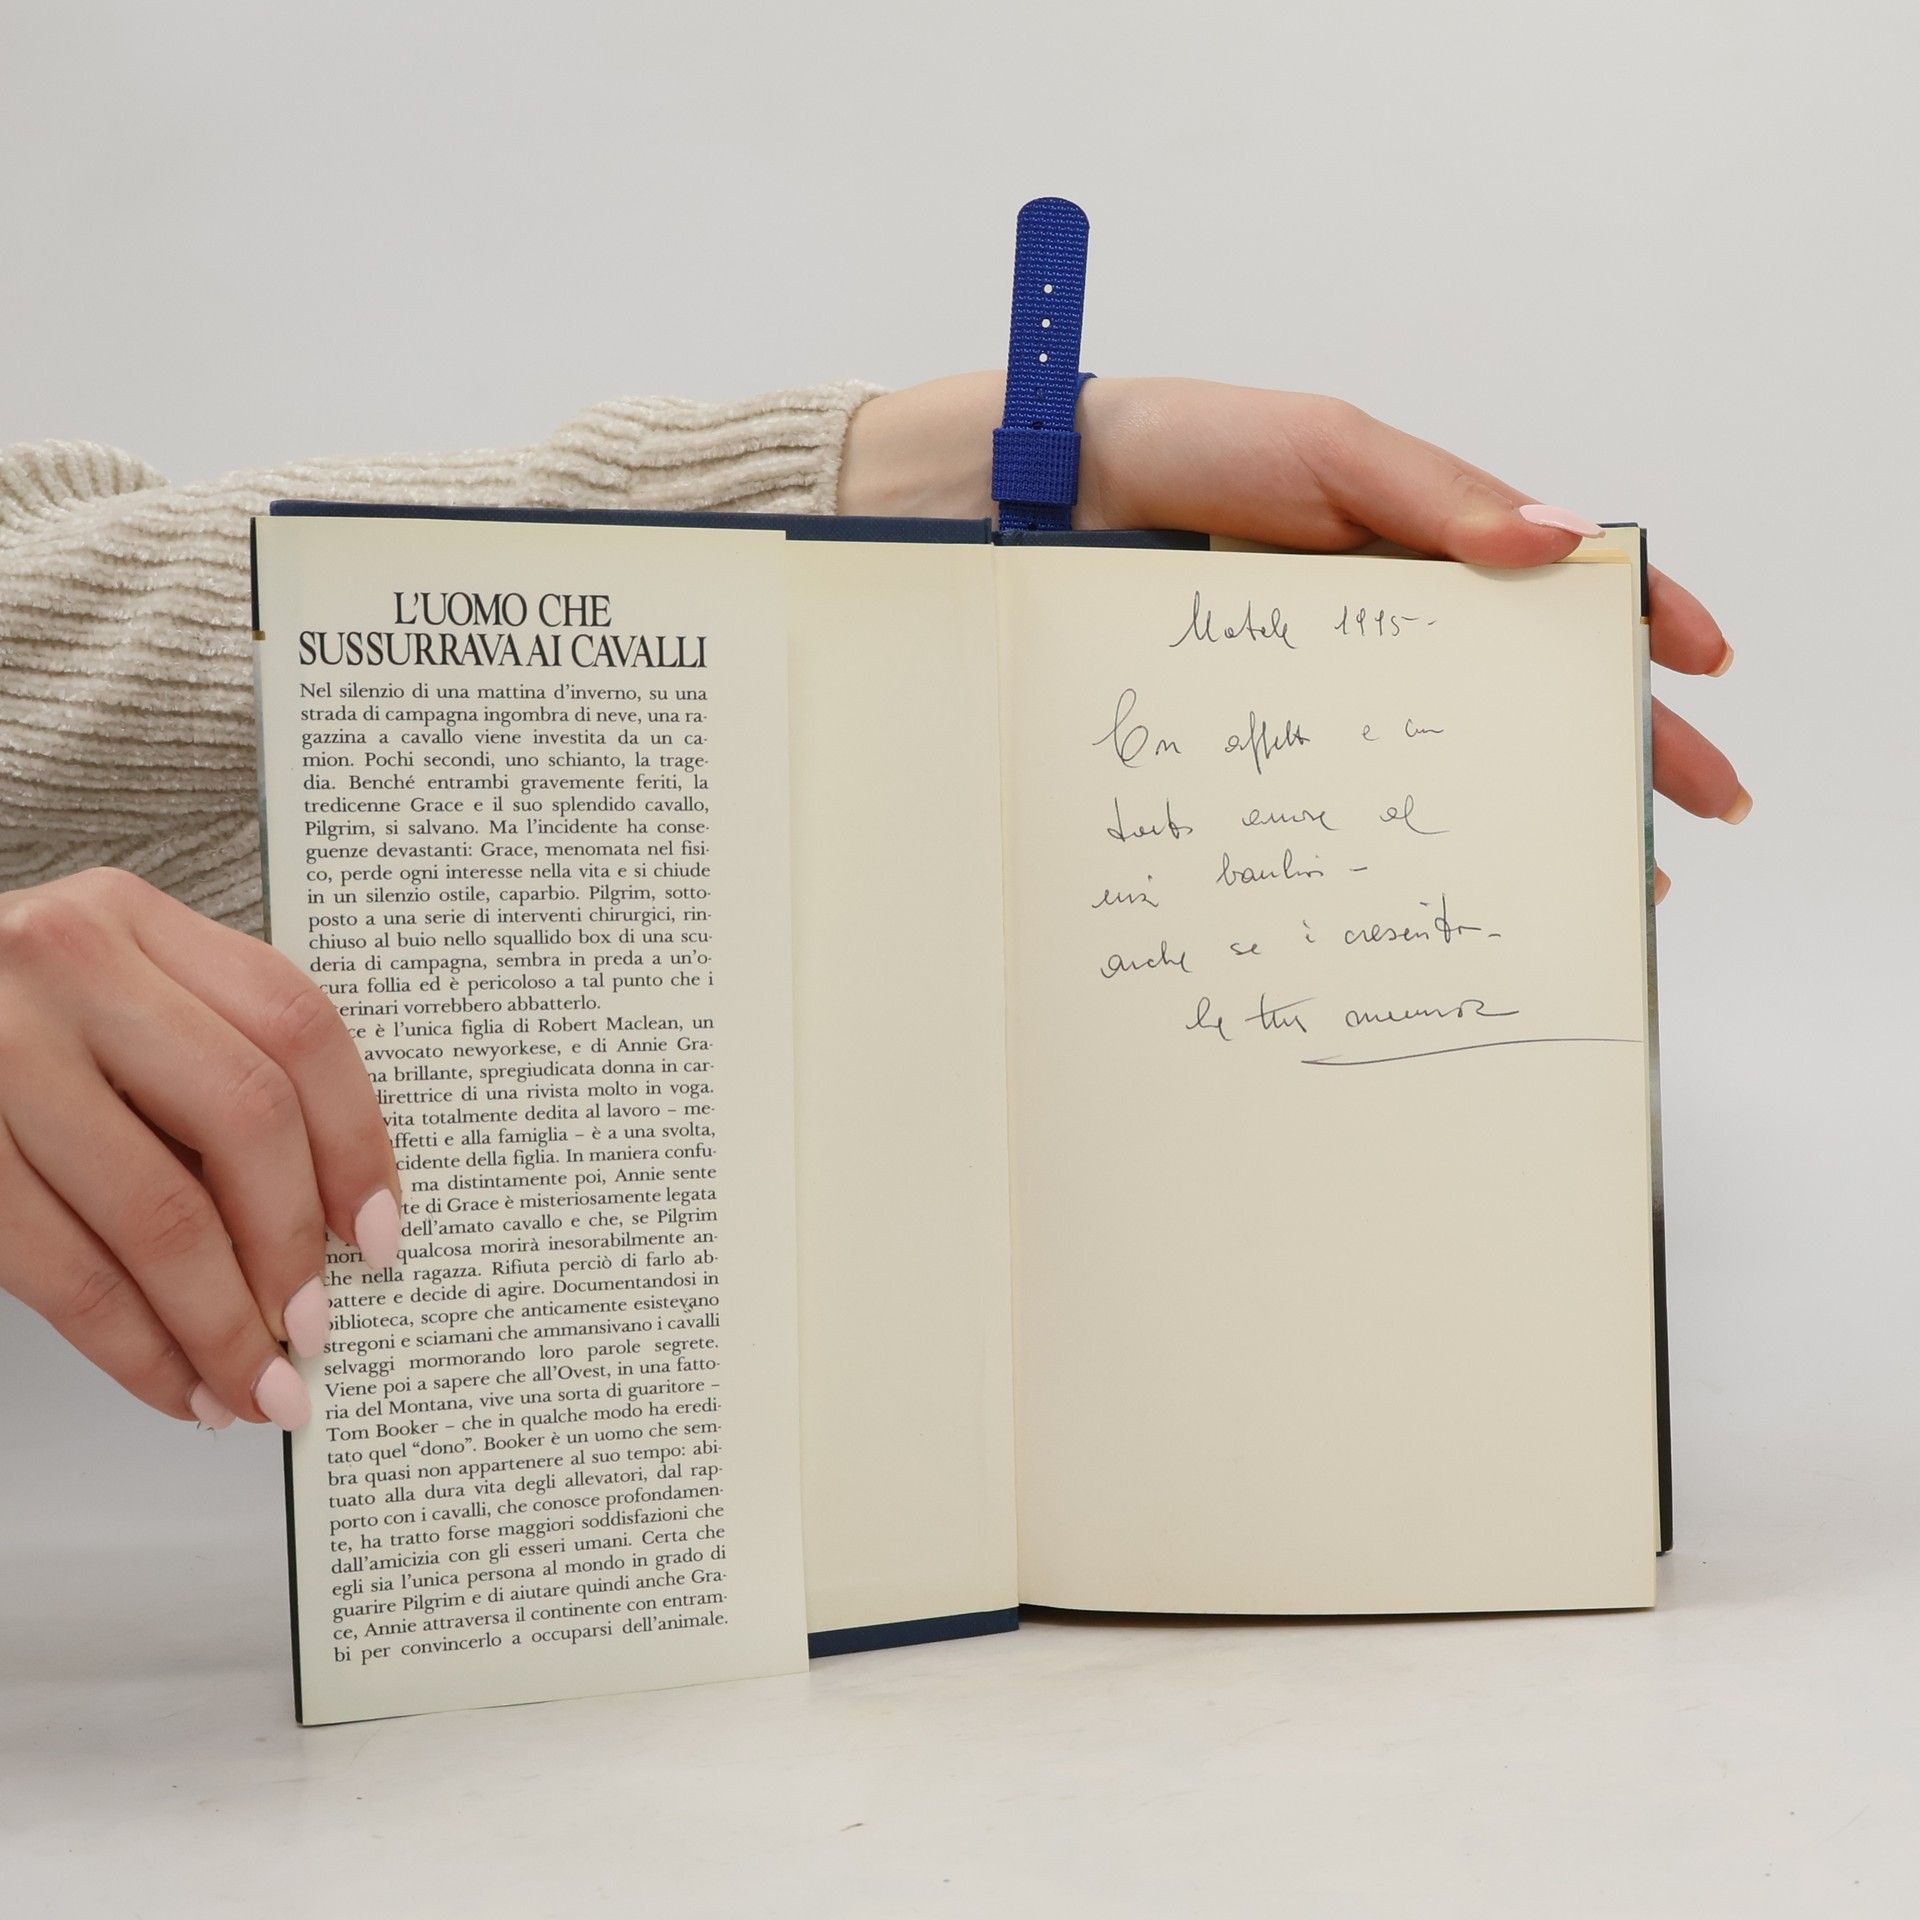 L'UOMO CHE
SUSSURRAVA AI CAVALLI
Nel silenzio di una mattina d'inverno, su una
strada di campagna ingombra di neve, una ra-
gazzina a cavallo viene investita da un ca-
mion. Pochi secondi, uno schianto, la trage-
dia. Benché entrambi gravemente feriti, la
tredicenne Grace e il suo splendido cavallo,
Pilgrim, si salvano. Ma l'incidente ha conse-
guenze devastanti: Grace, menomata nel fisi-
co, perde ogni interesse nella vita e si chiude
in un silenzio ostile, caparbio. Pilgrim, sotto-
posto a una serie di interventi chirurgici, rin-
chiuso al buio nello squallido box di una scu-
deria di campagna, sembra in preda a un'o-
cura follia ed è pericoloso a tal punto che i
terinari vorrebbero abbatterlo.
ce è l'unica figlia di Robert Maclean, un
avvocato newyorkese, e di Annie Gra-
na brillante, spregiudicata donna in car-
direttrice di una rivista molto in voga.
vita totalmente dedita al lavoro – me-
affetti e alla famiglia – è a una svolta,
cidente della figlia. In maniera confu-
ma distintamente poi, Annie sente
rte di Grace è misteriosamente legata
dell'amato cavallo e che, se Pilgrim
mori qualcosa morirà inesorabilmente an-
che nella ragazza. Rifiuta perciò di farlo ab-
battere e decide di agire. Documentandosi in
biblioteca, scopre che anticamente esistevano
stregoni e sciamani che ammansivano i cavalli
selvaggi mormorando loro parole segrete.
Viene poi a sapere che all'Ovest, in una fatto-
ria del Montana, vive una sorta di guaritore –
Tom Booker – che in qualche modo ha eredi-
tato quel "dono". Booker è un uomo che sem-
bra quasi non appartenere al suo tempo: abi-
tuato alla dura vita degli allevatori, dal rap-
porto con i cavalli, che conosce profondamen-
te, ha tratto forse maggiori soddisfazioni che
dall'amicizia con gli esseri umani. Certa che
egli sia l'unica persona al mondo in grado di
guarire Pilgrim e di aiutare quindi anche Gra-
ce, Annie attraversa il continente con entram-
bi per convincerlo a occuparsi dell'animale.
Natale 1995--
Con affetto e con
tanto amore al
mio bambino -
anche se è cresciuto -
la tua mamma